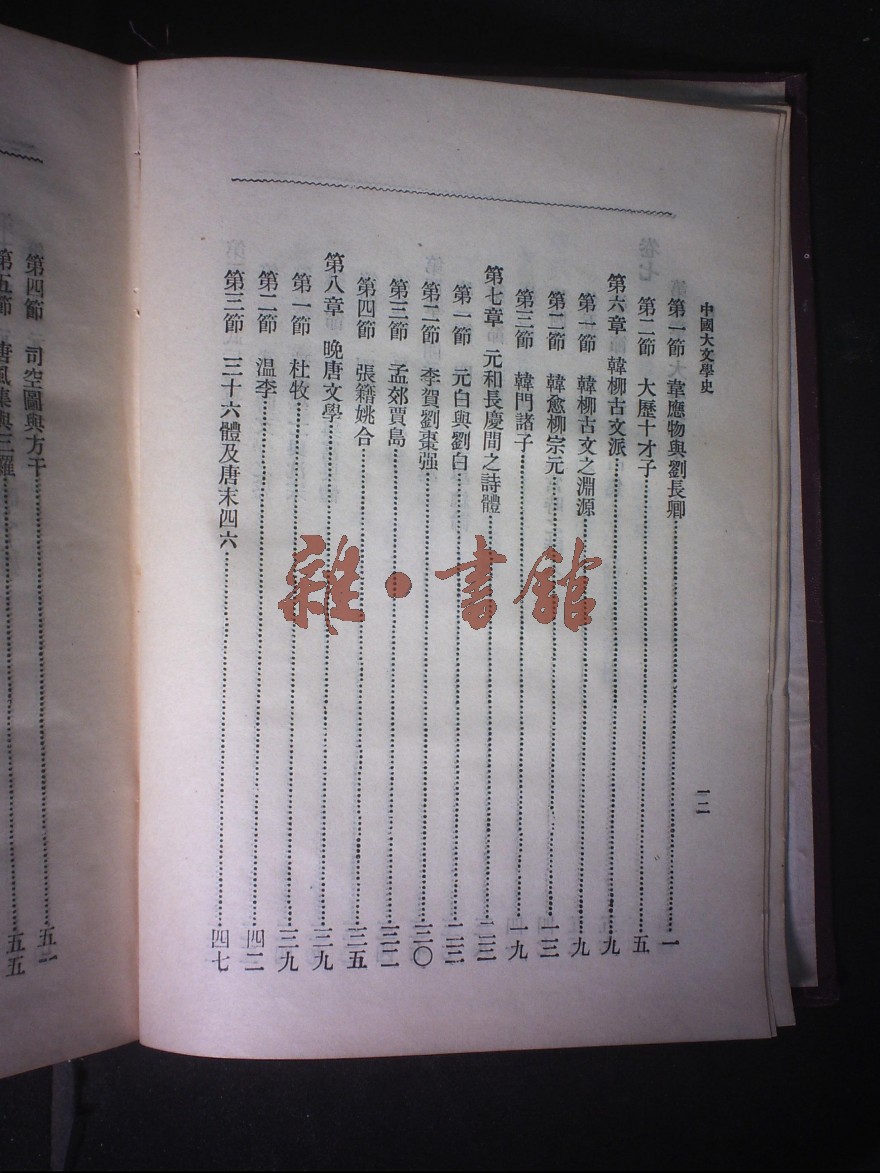 中國大文學史
一二
第一節 韋應物與劉長卿 一
第二節 大歷十才子 五
第六章 韓柳古文派 九
第一節 韓柳古文之淵源 九
第二節 韓愈柳宗元 一三
第三節 韓門諸子 一九
第七章 元和長慶間之詩體 二三
第一節 元白與劉白 二三
第二節 李賀劉棗强 三〇
第三節 孟郊賈島 三二
第四節 張籍姚合 三五
第八章 晚唐文學 三九
第一節 杜牧 三九
第二節 温李 四二
第三節 三十六體及唐末四六 四七
第四節 司空圖與方干 五一
第五節 唐風集與三羅 五五
雜·書館